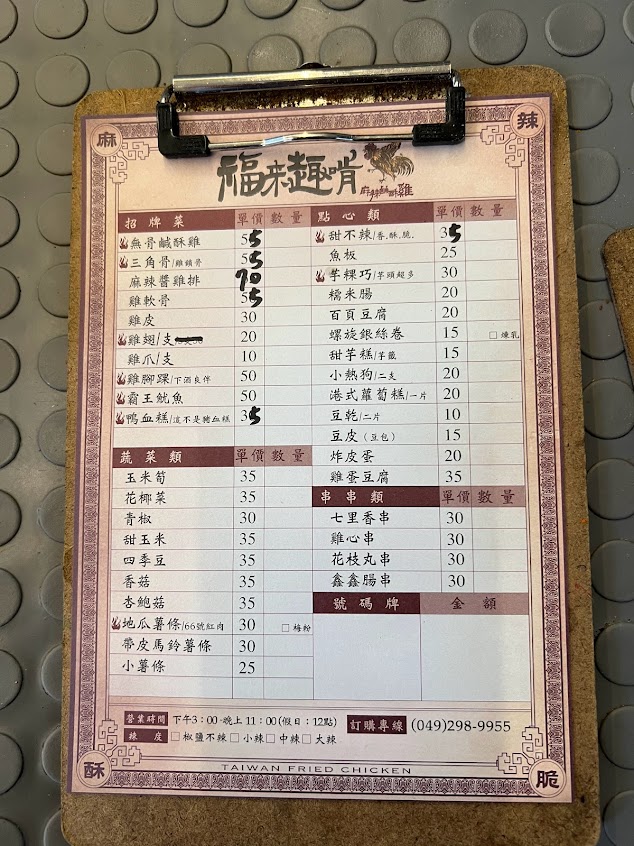 麻
辣
福來趣啃
麻辣鹹酥雞
招牌菜 單價 數量
無骨鹹酥雞 55
三角骨/雞鎖骨 55
麻辣醬雞排 70
雞軟骨 55
雞皮 30
雞翅/支 20
雞爪/支 10
雞腳踝/下酒良伴 50
霸王魷魚 50
鴨血糕/這不是豬血糕 35
蔬菜類 單價 數量
玉米筍 35
花椰菜 35
青椒 30
甜玉米 35
四季豆 35
香菇 35
杏鮑菇 35
地瓜薯條/66號紅肉 30 □梅粉
帶皮馬鈴薯條 30
小薯條 25
點心類 單價 數量
甜不辣/香.酥.脆. 35
魚板 25
芋粿巧/芋頭超多 30
糯米腸 20
百頁豆腐 20
螺旋銀絲卷 15 □煉乳
甜芋糕/芋籤 15
小熱狗/二支 20
港式蘿蔔糕/一片 20
豆乾/二片 10
豆皮(豆包) 15
炸皮蛋 20
雞蛋豆腐 35
串串類 單價 數量
七里香串 30
雞心串 30
花枝丸串 30
鑫鑫腸串 30
號碼牌 金額
營業時間 下午3:00-晚上11:00(假日:12點) 訂購專線 (049)298-9955
辣度 □椒鹽不辣 □小辣 □中辣 □大辣
酥
TAIWAN FRIED CHICKEN
脆